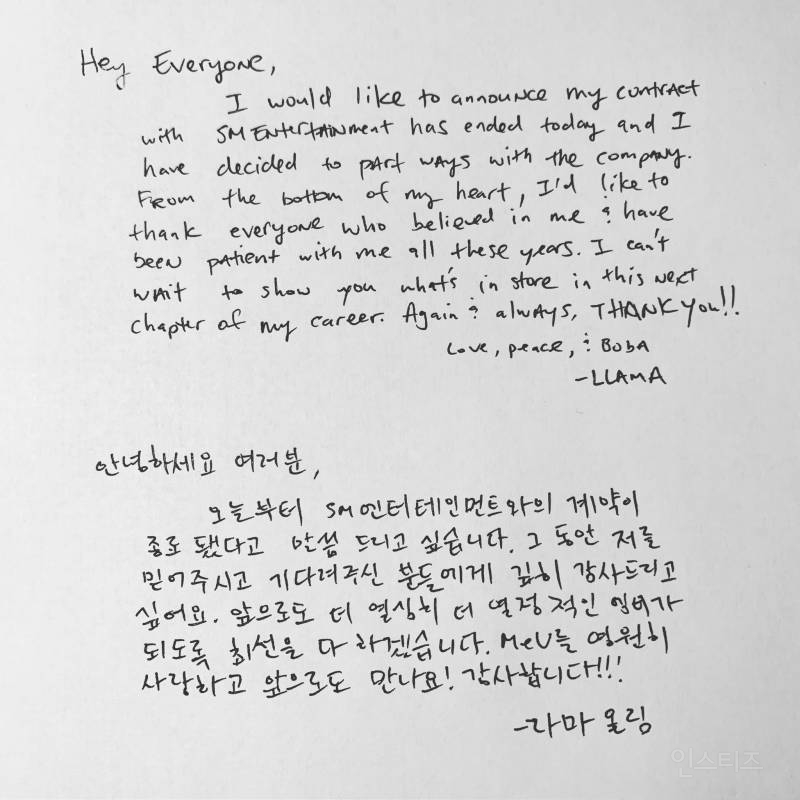 Hey Everyone,
I would like to announce my contract
with SM Entertainment has ended today and I
have decided to part ways with the company.
From the bottom of my heart, I'd like to
thank everyone who believed in me & have
been patient with me all these years. I can't
wait to show you what's in store in this next
chapter of my career. Again & always, THANK YOU!!
Love, peace, & Boba
-LLAMA
안녕하세요 여러분,
오늘부터 SM엔터테인먼트와의 계약이
종료 됐다고 말씀 드리고 싶습니다. 그 동안 저를
믿어주시고 기다려주신 분들에게 깊히 감사드리고
싶어요. 앞으로도 더 열심히 더 열정적인 엠버가
되도록 최선을 다 하겠습니다. MeU를 영원히
사랑하고 앞으로도 만나요! 감사합니다!!!
-라마 올림
인스티즈